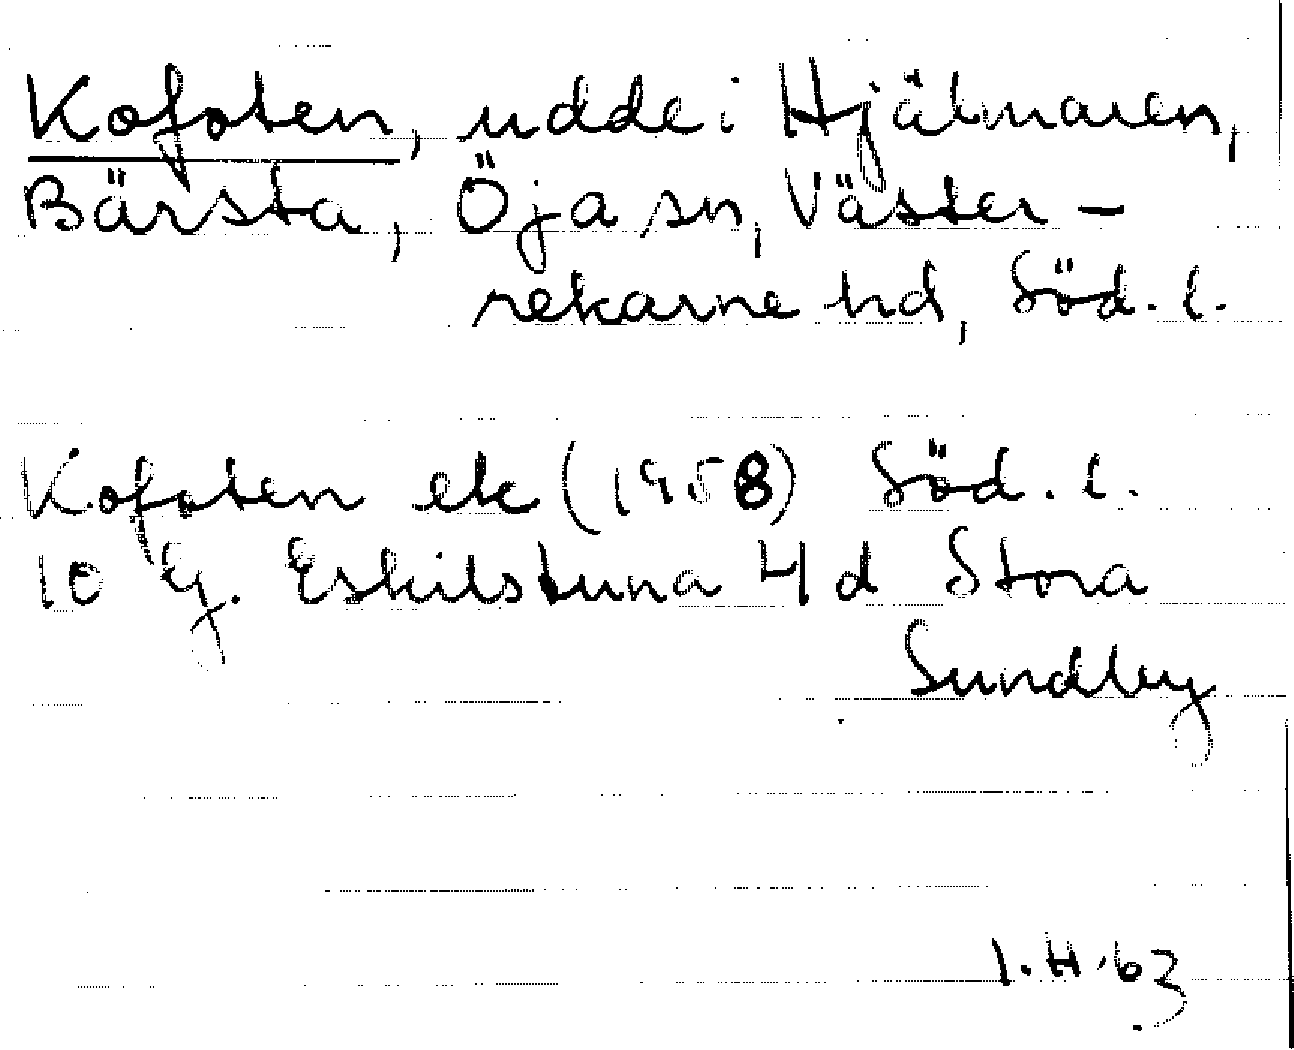 Kofoten, udde i Hjälmaren,
Bärsta, Öja sn, Väster-
rekarne hd, Söd. l.
Kofoten ek (1958) Söd. l.
10 G. Eskilstuna 4 d Stora
Sundby
I.H. 63